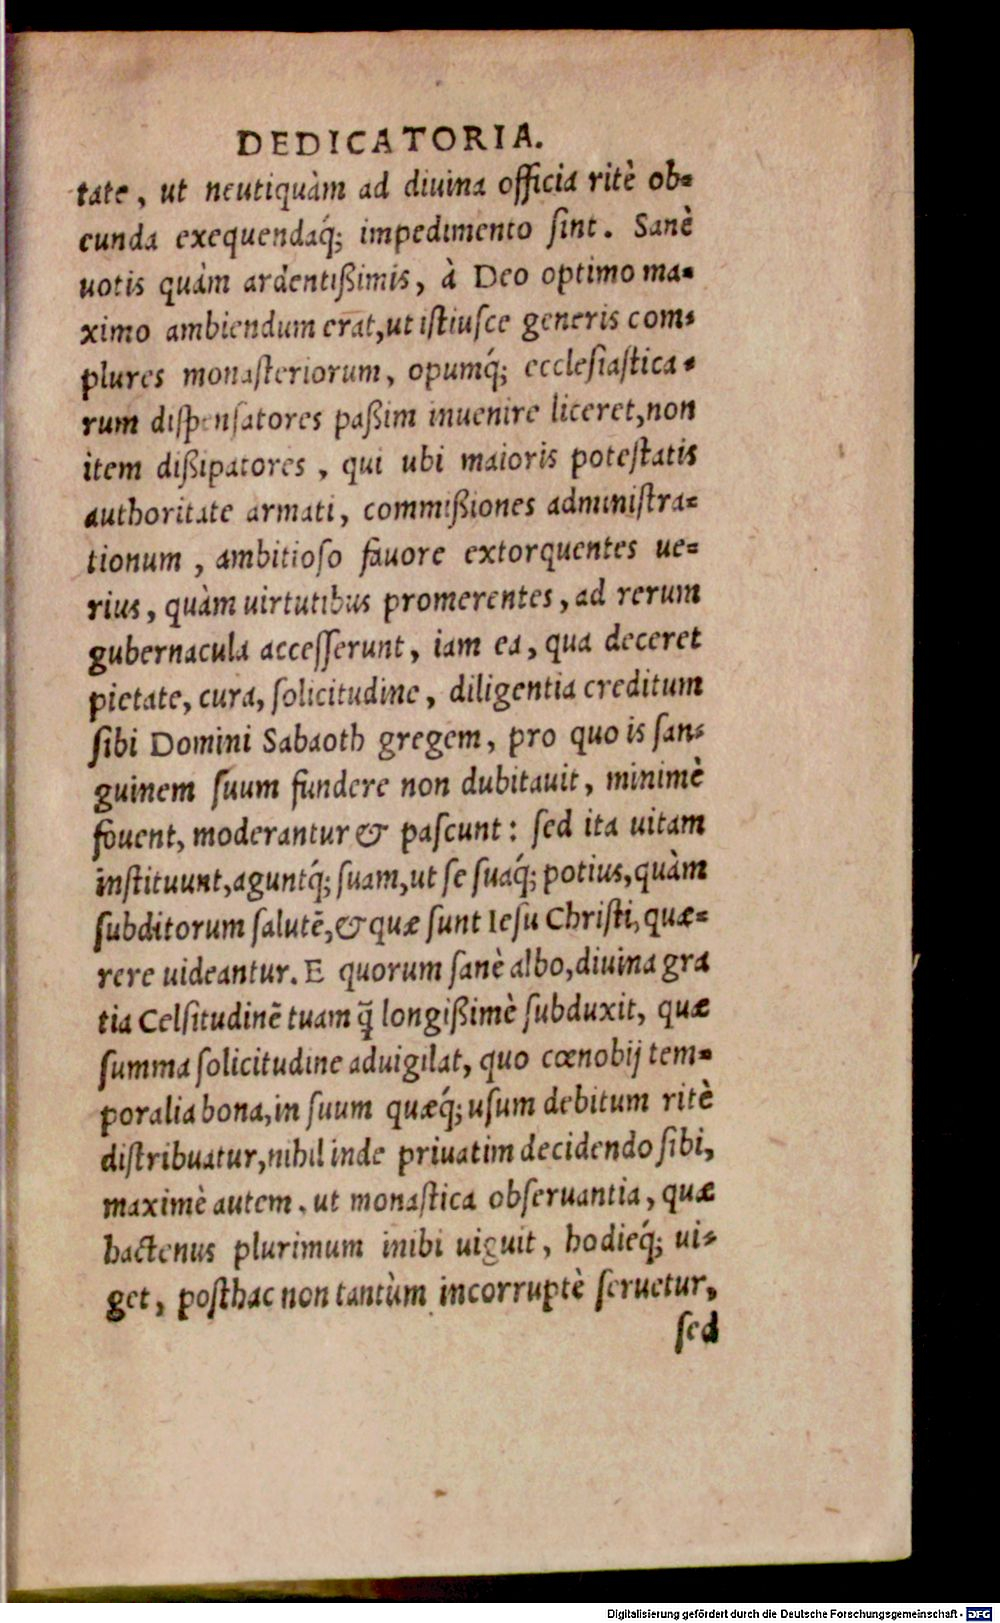 DEDICATORIA.
tate, ut neutiquàm ad diuina officia ritè ob=
eunda exequendaq́; impedimento ſint. Sanè
uotis quàm ardentißimis, à Deo optimo ma=
ximo ambiendum erat, ut iſtiuſce generis com=
plures monaſteriorum, opumq́; eccleſiaſtica=
rum diſpenſatores paßim inuenire liceret, non
item dißipatores, qui ubi maioris poteſtatis
authoritate armati, commißiones adminiſtra=
tionum, ambitioſo fauore extorquentes ue=
rius, quàm uirtutibus promerentes, ad rerum
gubernacula acceſſerunt, iam ea, qua deceret
pietate, cura, ſolicitudine, diligentia creditum
ſibi Domini Sabaoth gregem, pro quo is ſan=
guinem ſuum fundere non dubitauit, minimè
fouent, moderantur & paſcunt: ſed ita uitam
inſtituunt, aguntq́; ſuam, ut ſe ſuaq́; potius, quàm
ſubditorum ſalutē, & quæ ſunt Ieſu Chriſti, quæ=
rere uideantur. E quorum ſanè albo, diuina gra
tia Celſitudinē tuam q̃ longißimè ſubduxit, quæ
ſumma ſolicitudine aduigilat, quo cœnobij tem=
poralia bona, in ſuum quæq́; uſum debitum ritè
diſtribuatur, nihil inde priuatim decidendo ſibi,
maximè autem, ut monaſtica obſeruantia, quæ
hactenus plurimum inibi uiguit, hodieq́; ui=
get, poſthac non tantùm incorruptè ſeruetur,
ſed
Digitalisierung gefördert durch die Deutsche Forschungsgemeinschaft - DFG